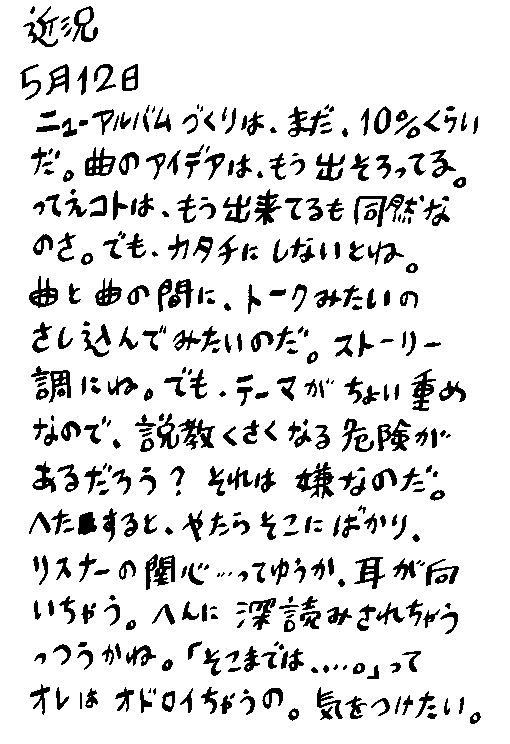 近況
5月12日
ニューアルバムづくりは、まだ、10%くらい
だ。曲のアイデアは、もう出そろってる。
ってえコトは、もう出来てるも同然な
のさ。でも、カタチにしないとね。
曲と曲の間に、トークみたいの
さし込んでみたいのだ。ストーリー
調にね。でも、テーマがちょい重め
なので、説教くさくなる危険が
あるだろう？それは嫌なのだ。
へたすると、やたらそこにばかり、
リスナーの関心…ってゆうか、耳が向
いちゃう。へんに深読みされちゃう
っつうかね。「そこまでは.....。」って
オレはオドロイちゃうの。気をつけたい。